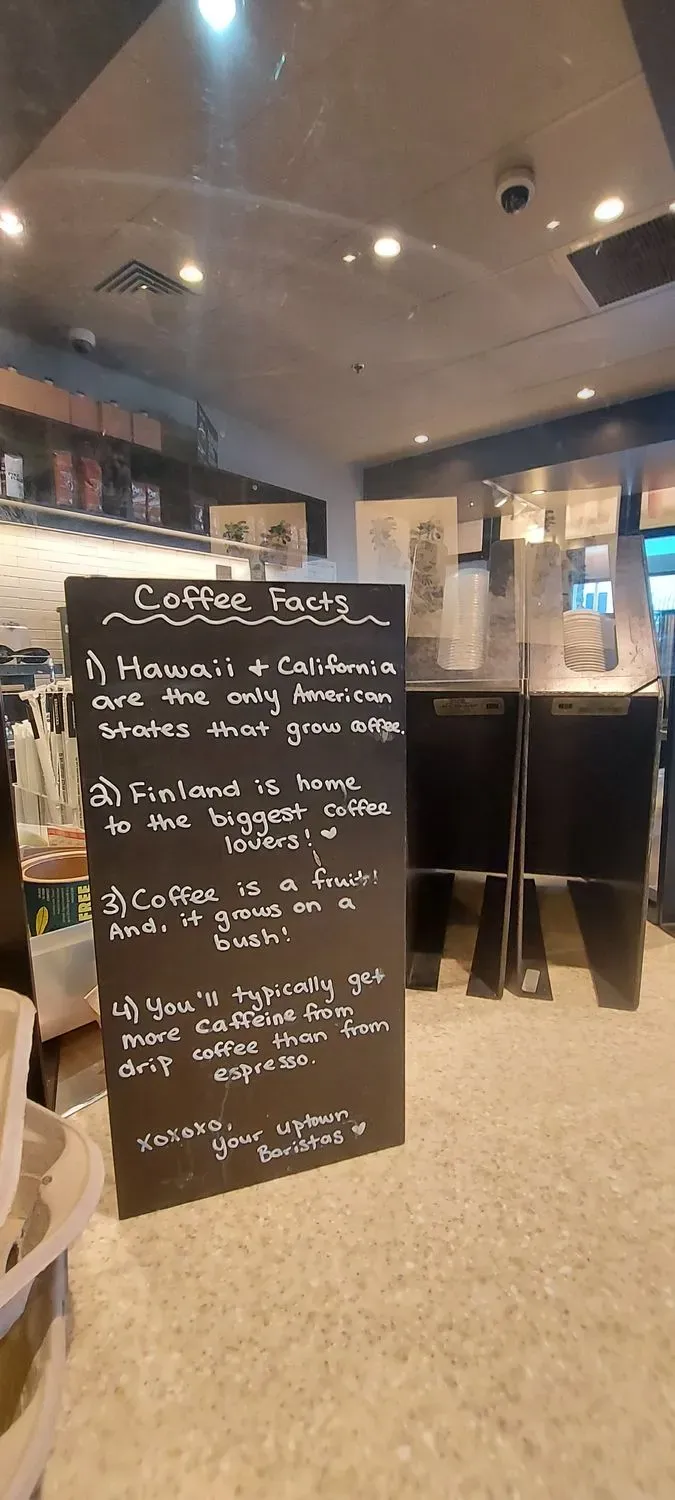 Coffee Facts
1) Hawaii + California
are the only American
states that grow coffee.
2) Finland is home
to the biggest coffee
lovers! ♥
3) Coffee is a fruit!
And, it grows on a
bush!
4) You'll typically get
more caffeine from
drip coffee than from
espresso.
xoxoxo,
Your Uptown
Baristas ♥
FREE